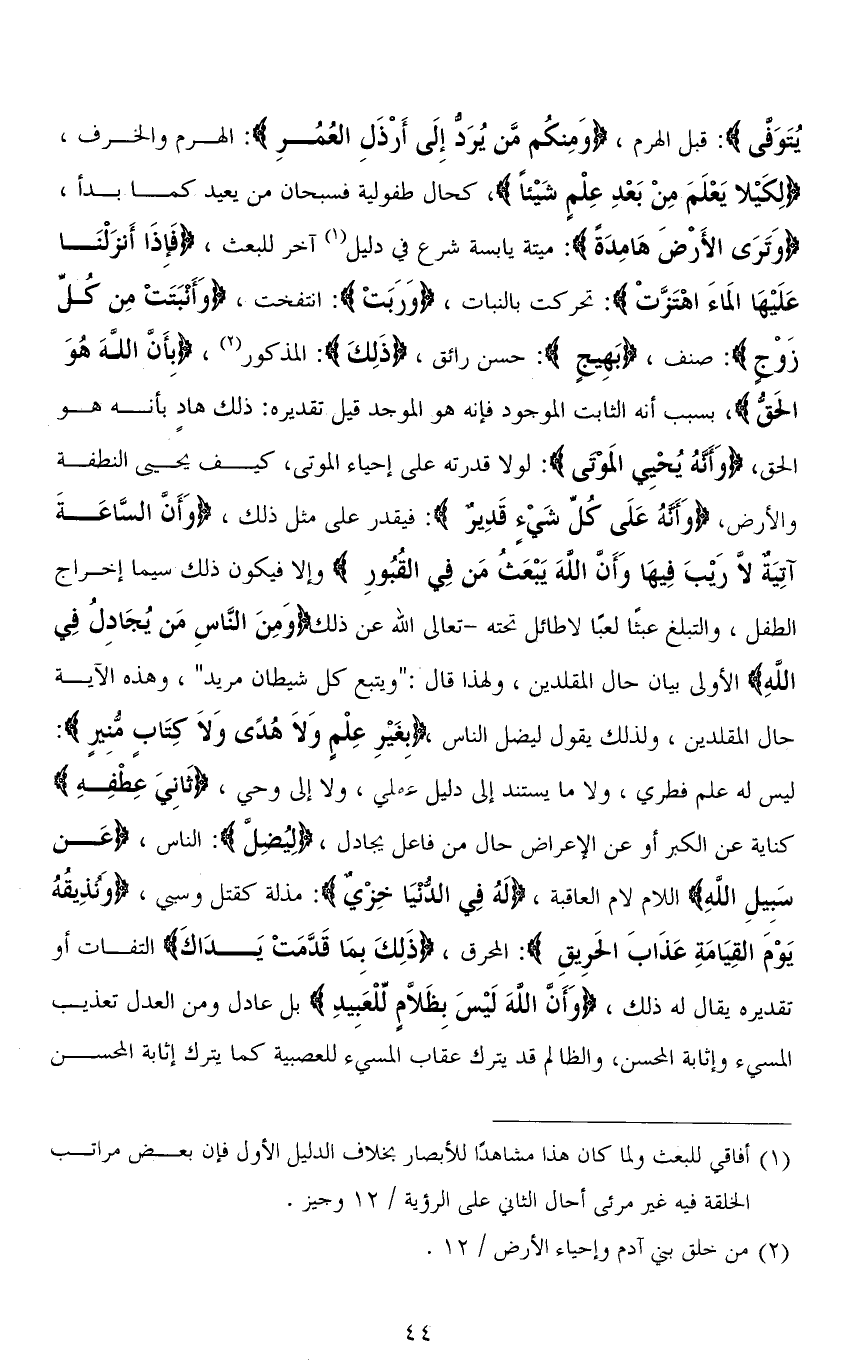 يُتَوَفَّى ﴾: قبل الهرم ، ﴿وَمِنكُم مَّن يُرَدُّ إِلَى أَرْذَلِ العُمُــرِ ﴾: الهــرم والخــرف ،
﴿لِكَيْلا يَعْلَمَ مِنْ بَعْدِ عِلْمٍ شَيْئاً ﴾، كحال طفولية فسبحان من يعيد كمــا بــدأ ،
﴿وَتَرَى الأَرْضَ هَامِدَةً ﴾: ميتة يابسة شرع في دليل(١) آخر للبعث ، ﴿فَإِذَا أَنزَلْنَــا
عَلَيْهَا الَمَاءَ اهْتَزَّتْ ﴾: تحركت بالنبات ، ﴿وَرَبَتْ ﴾: انتفخت ، ﴿وَأَنْبَتَتْ مِن كُــلِّ
زَوْجٍ ﴾: صنف ، ﴿بَهِيجٍ ﴾: حسن رائق ، ﴿ذَلِكَ ﴾: المذكور(٢) ، ﴿بِأَنَّ اللــهَ هُوَ
الحَقُّ ﴾، بسبب أنه الثابت الموجود فإنه هو الموجد قيل تقديره: ذلك هادٍ بأنــه هــو
الحق، ﴿وَأَنَّهُ يُحْيِي الَمْوْتَى ﴾: لولا قدرته على إحياء الموتى، كيــف يحــيى النطفــة
والأرض، ﴿وَأَنَّهُ عَلَى كُلِّ شَيْءٍ قَدِيرٌ ﴾: فيقدر على مثل ذلك ، ﴿وَأَنَّ السَّاعَــةَ
آتِيَةٌ لاَّ رَيْبَ فِيهَا وَأَنَّ اللَّهَ يَبْعَثُ مَن فِي القُبُورِ ﴾ وإلا فيكون ذلك سيما إخــراج
الطفل ، والتبلغ عبثًا لعبًا لاطائل تحته -تعالى الله عن ذلك﴿وَمِنَ النَّاسِ مَن يُجَادِلُ فِي
اللَّهِ﴾ الأولى بيان حال المقلدين ، ولهذا قال :"ويتبع كل شيطان مريد" ، وهذه الآيــة
حال المقلدين ، ولذلك يقول ليضل الناس ،﴿بِغَيْرِ عِلْمٍ وَلاَ هُدًى وَلاَ كِتَابٍ مُّنِيرٍ ﴾:
ليس له علم فطري ، ولا ما يستند إلى دليل عملي ، ولا إلى وحي ، ﴿ثَانِيَ عِطْفِــهِ ﴾
كناية عن الكبر أو عن الإعراض حال من فاعل يجادل ،﴿لِيُضِلَّ ﴾: الناس ، ﴿عَــن
سَبِيلِ اللَّهِ﴾ اللام لام العاقبة ، ﴿لَهُ فِي الدُّنْيَا خِزْيٌ ﴾: مذلة كقتل وسبي ، ﴿وَنُذِيقُهُ
يَوْمَ القِيَامَةِ عَذَابَ الحَرِيقِ ﴾: المحرق ، ﴿ذَلِكَ بِمَا قَدَّمَتْ يَــدَاكَ﴾ التفــات أو
تقديره يقال له ذلك ، ﴿وَأَنَّ اللَّهَ لَيْسَ بِظَلاَّمٍ لِّلْعَبِيدِ ﴾ بل عادل ومن العدل تعذيب
المسيء وإثابة المحسن، والظالم قد يترك عقاب المسيء للعصبية كما يترك إثابة المحســن
(١) أفاقي للبعث ولما كان هذا مشاهدًا للأبصار بخلاف الدليل الأول فإن بعــض مراتــب
الخلقة فيه غير مرئى أحال الثاني على الرؤية / ١٢ وجيز .
(٢) من خلق بني آدم وإحياء الأرض / ١٢ .
٤٤